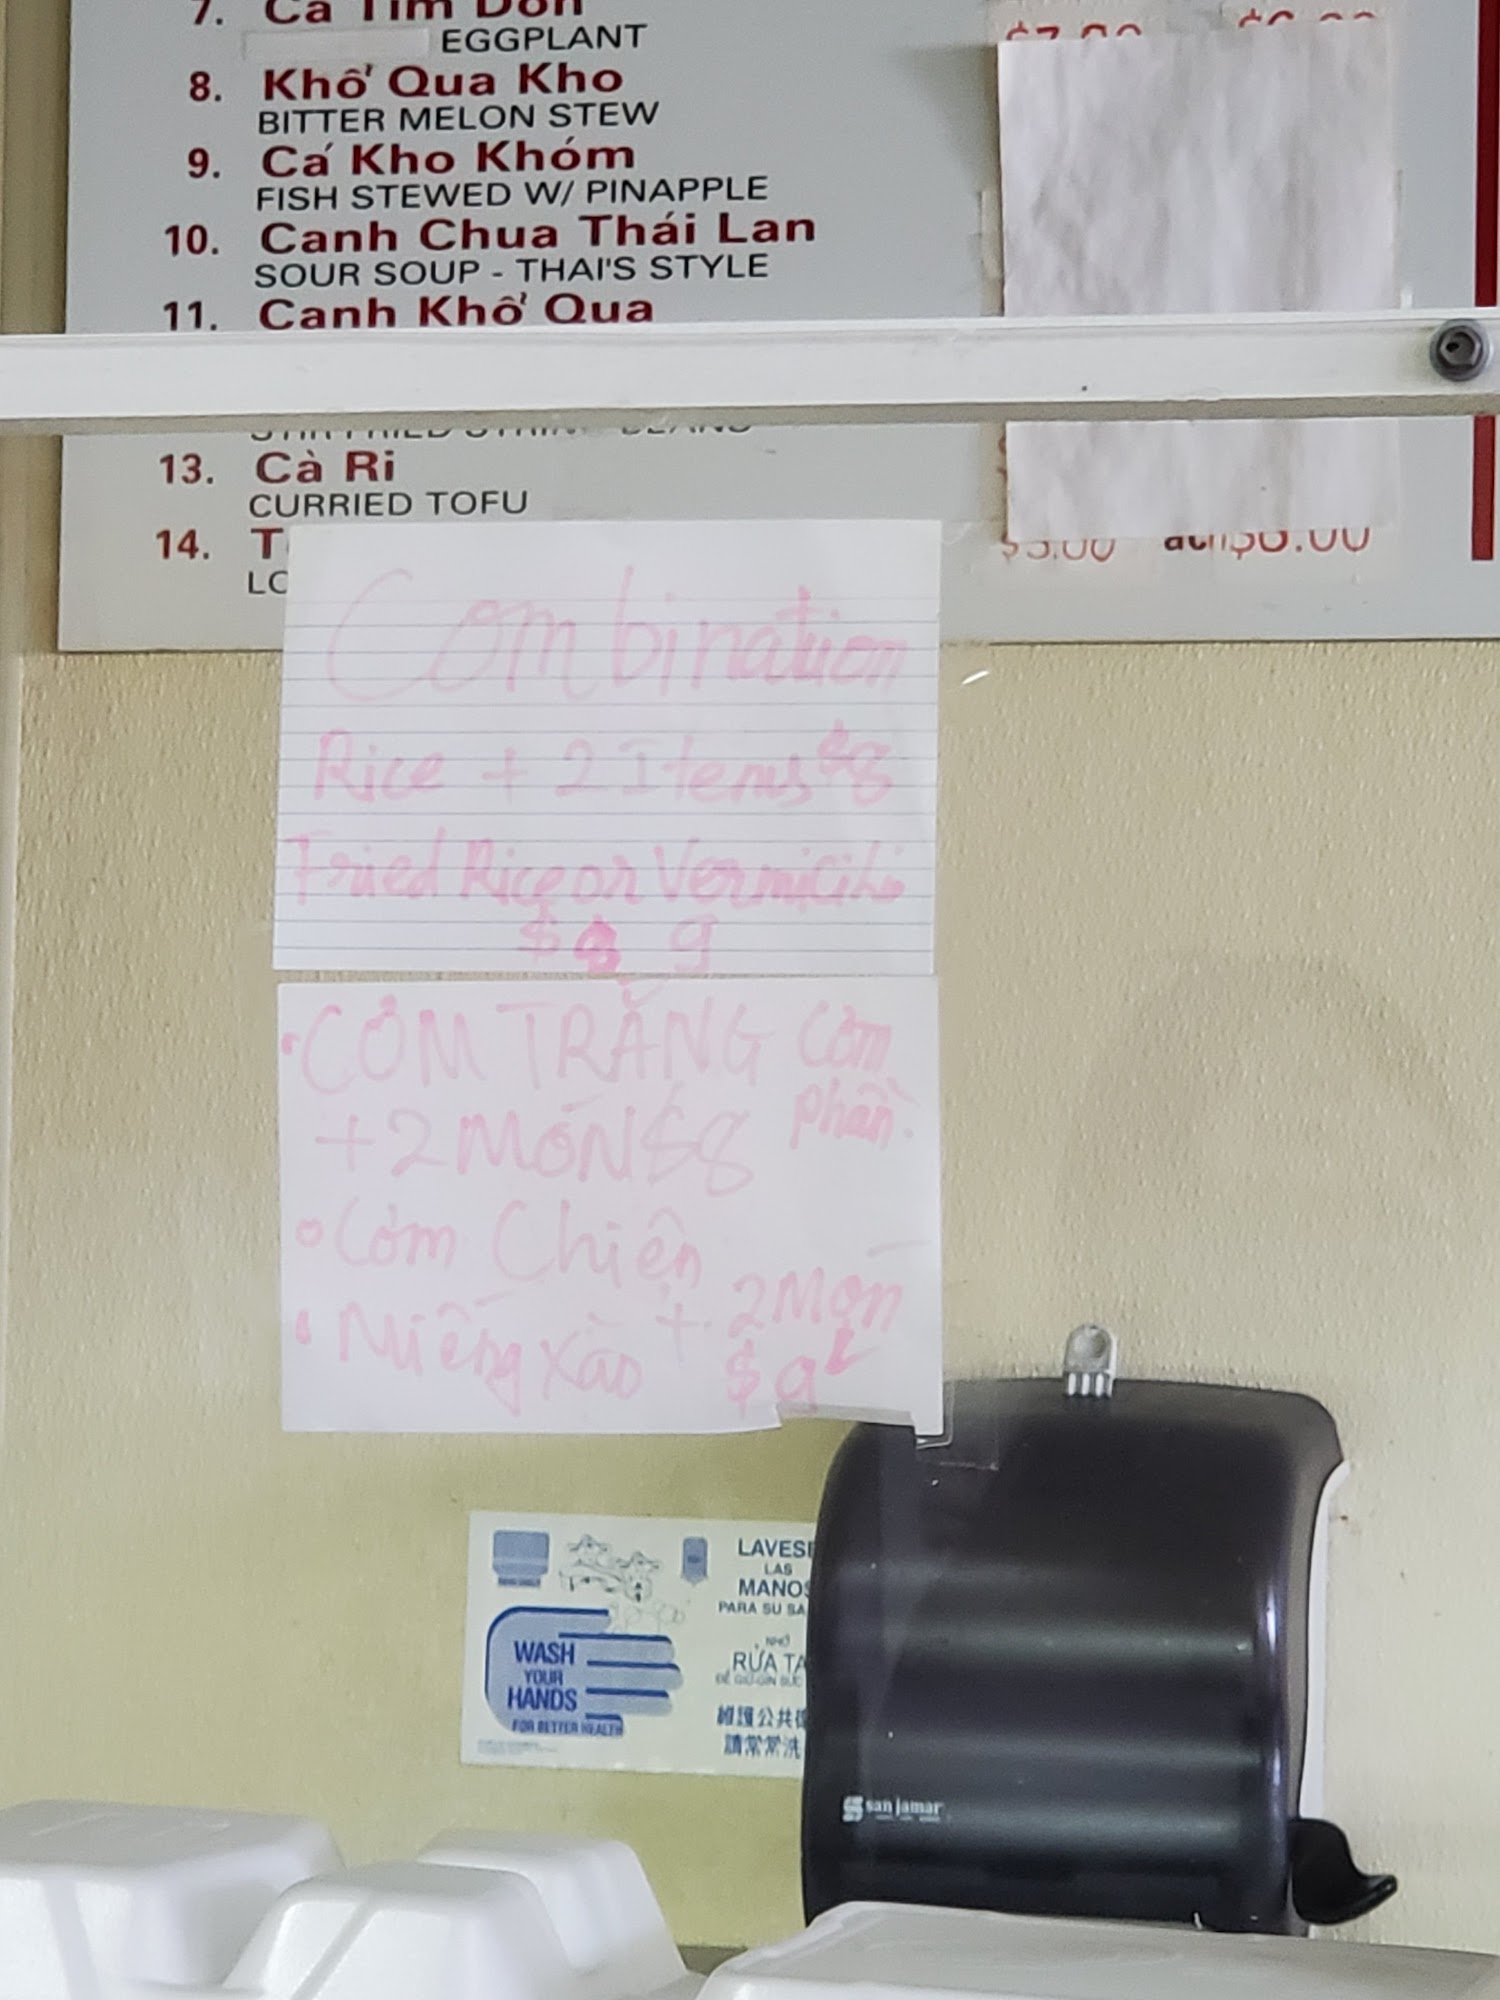 7. Cà Tím Đồn
EGGPLANT
8. Khổ Qua Kho
BITTER MELON STEW
9. Cá Kho Khóm
FISH STEWED W/ PINAPPLE
10. Canh Chua Thái Lan
SOUR SOUP - THAI'S STYLE
11. Canh Khổ Qua
13. Cà Ri
CURRIED TOFU
14. T
LO
$5.00 $6.00
Combination
Rice + 2 Items $8
Fried Rice or Vermicili
$ 9
CƠM TRẮNG Cơm
phần.
+ 2 MÓN $8
Cơm Chiên
Miếng xào + 2 Món
$9
WASH
YOUR
HANDS
FOR BETTER HEALTH
LAVESE
LAS
MANOS
PARA SU SA
NHỚ
RỬA TA
ĐỂ GIỮ GÌN SỨC
維護公共
請常常洗
san jamar